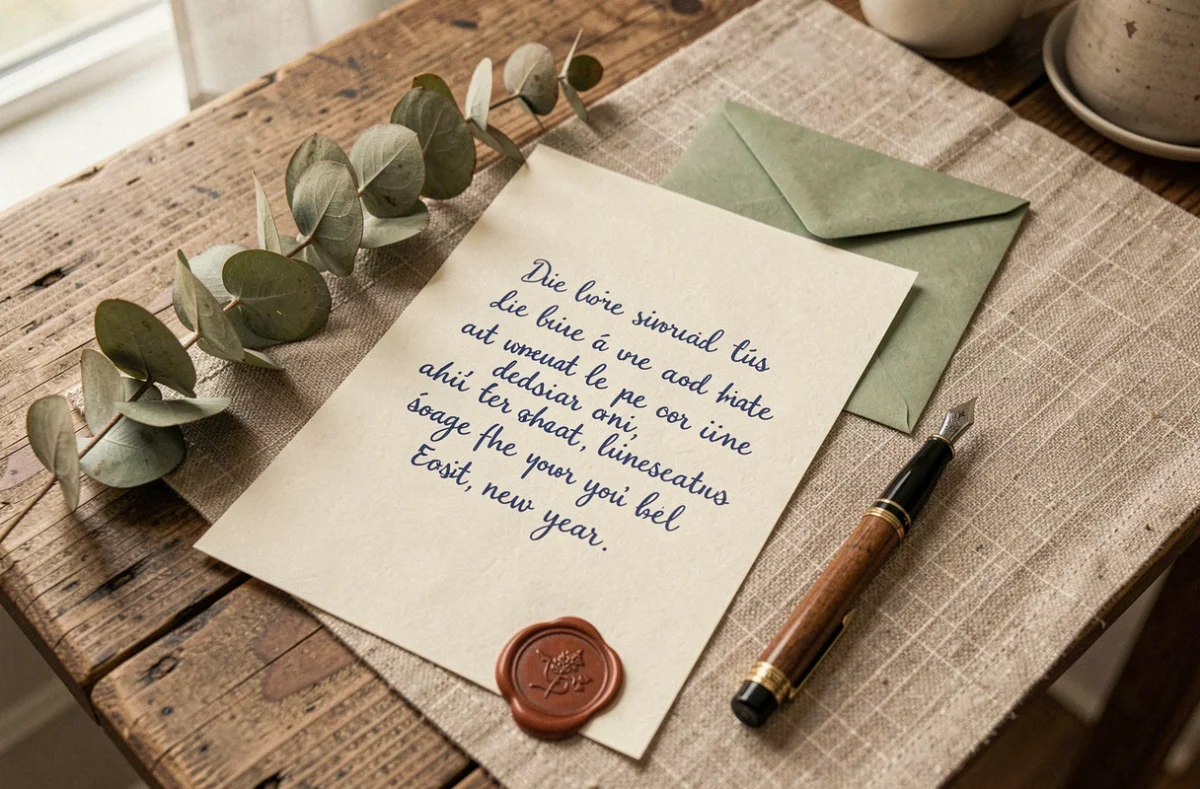 Die lore sivoruid tús
die biue á vre aod hiate
aıt wreuat le pe cor üne
dedsiar oni,
ahü ter shaat, lüneseatus
soage fhe yoor you bél
Eosit, new year.